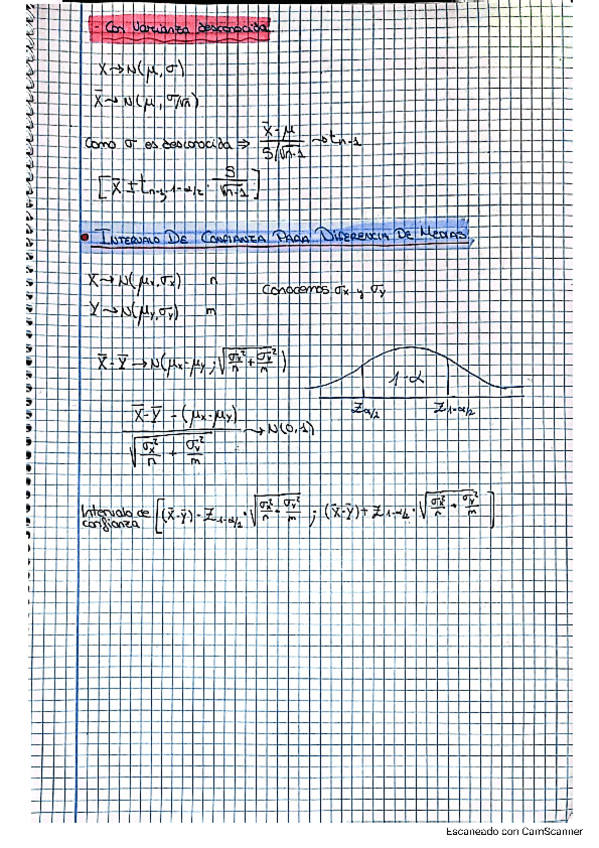 - Con Varianza desconocida
X→N(μ, σ)
X̄→N(μ, σ/√n)
Como σ es desconocida ⇒ (X̄-μ)/(S/√n-1) → tn-1
[X̄ ± tn-1, 1-α/2 · S/√n-1]
• INTERVALO DE CONFIANZA PARA DIFERENCIA DE MEDIAS
X→N(μx, σx) n Conocemos σx y σy
Y→N(μy, σy) m
X̄-Ȳ→N(μx-μy ; √(σx²/n + σy²/m))
1-α
Zα/2 Z1-α/2
(X̄-Ȳ - (μx-μy))/√(σx²/n + σy²/m) → N(0,1)
Intervalo de confianza [(x̄-ȳ) - Z1-α/2 · √(σx²/n + σy²/m) ; (x̄-ȳ) + Z1-α/2 · √(σx²/n + σy²/m)]
Escaneado con CamScanner